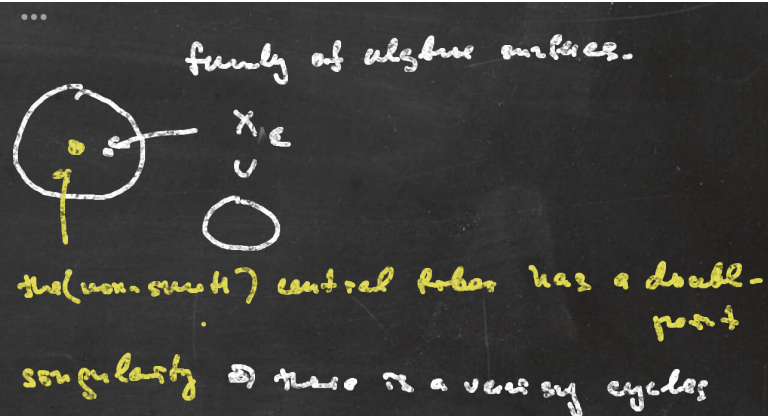 family of algebraic surfaces.
X_ε
∪
the (non-smooth) central fiber has a double-
point
singularity ⇒ there is a vanishing cycles